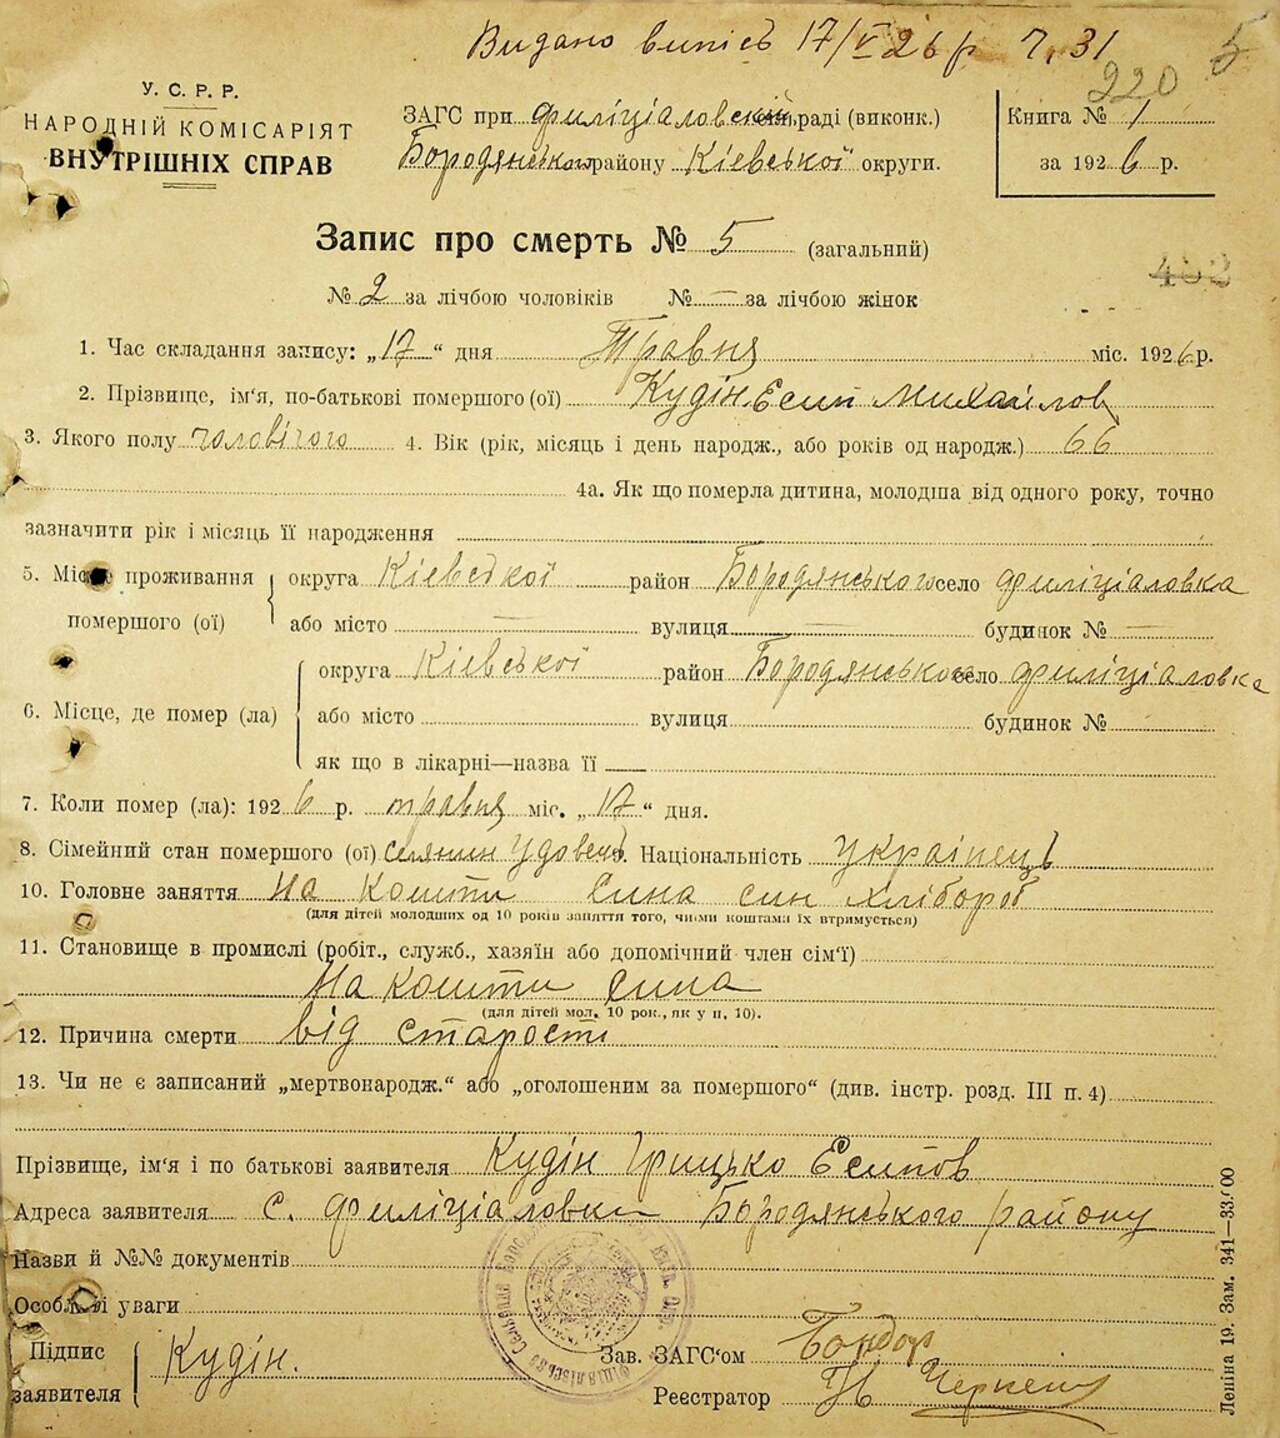 Видано випісь 17/V 26 р ч. 31
5
220
У. С. Р. Р.
НАРОДНІЙ КОМІСАРІЯТ
ВНУТРІШНІХ СПРАВ
ЗАГС при филіціаловській раді (виконк.)
Бородянського району Кієвської округи.
Книга № 1
за 1926 р.
Запис про смерть № 5 (загальний)
402
№ 2 за лічбою чоловіків № — за лічбою жінок
1. Час складання запису: „17“ дня Травня міс. 1926 р.
2. Прізвище, ім‘я, по-батькові помершого (ої) Кудін Есип Михайлов
3. Якого полу чоловічого 4. Вік (рік, місяць і день народж., або років од народж.) 66
4а. Як що померла дитина, молодша від одного року, точно
зазначити рік і місяць її народження
5. Місце проживання помершого (ої) округа Кієвської район Бородянського село филіціаловка
або місто — вулиця — будинок № —
6. Місце, де помер (ла) округа Кієвської район Бородянського село филіціаловка
або місто вулиця будинок № —
як що в лікарні—назва її —
7. Коли помер (ла): 1926 р. травня міс. „17“ дня.
8. Сімейний стан помершого (ої) селянин Удовець 9. Національність українець
10. Головне заняття на кошти сина син хлібороб
(для дітей молодших од 10 років заняття того, чиїми коштами їх втримується)
11. Становище в промислі (робіт., служб., хазяїн або допомічний член сім‘ї)
На кошти сина
(для дітей мол. 10 рок., як у п. 10).
12. Причина смерти від старости
13. Чи не є записаний „мертвонародж.“ або „оголошеним за помершого“ (див. інстр. розд. III п. 4)
Прізвище, ім‘я і по батькові заявителя Кудін Грицько Есипов
Адреса заявителя с. филіціаловки Бородянського району
Назви й №№ документів
Особливі уваги
Підпис заявителя Кудін.
Зав. ЗАГС‘ом Бондар
Реєстратор
Леніна 19. Зам. 341—33.000